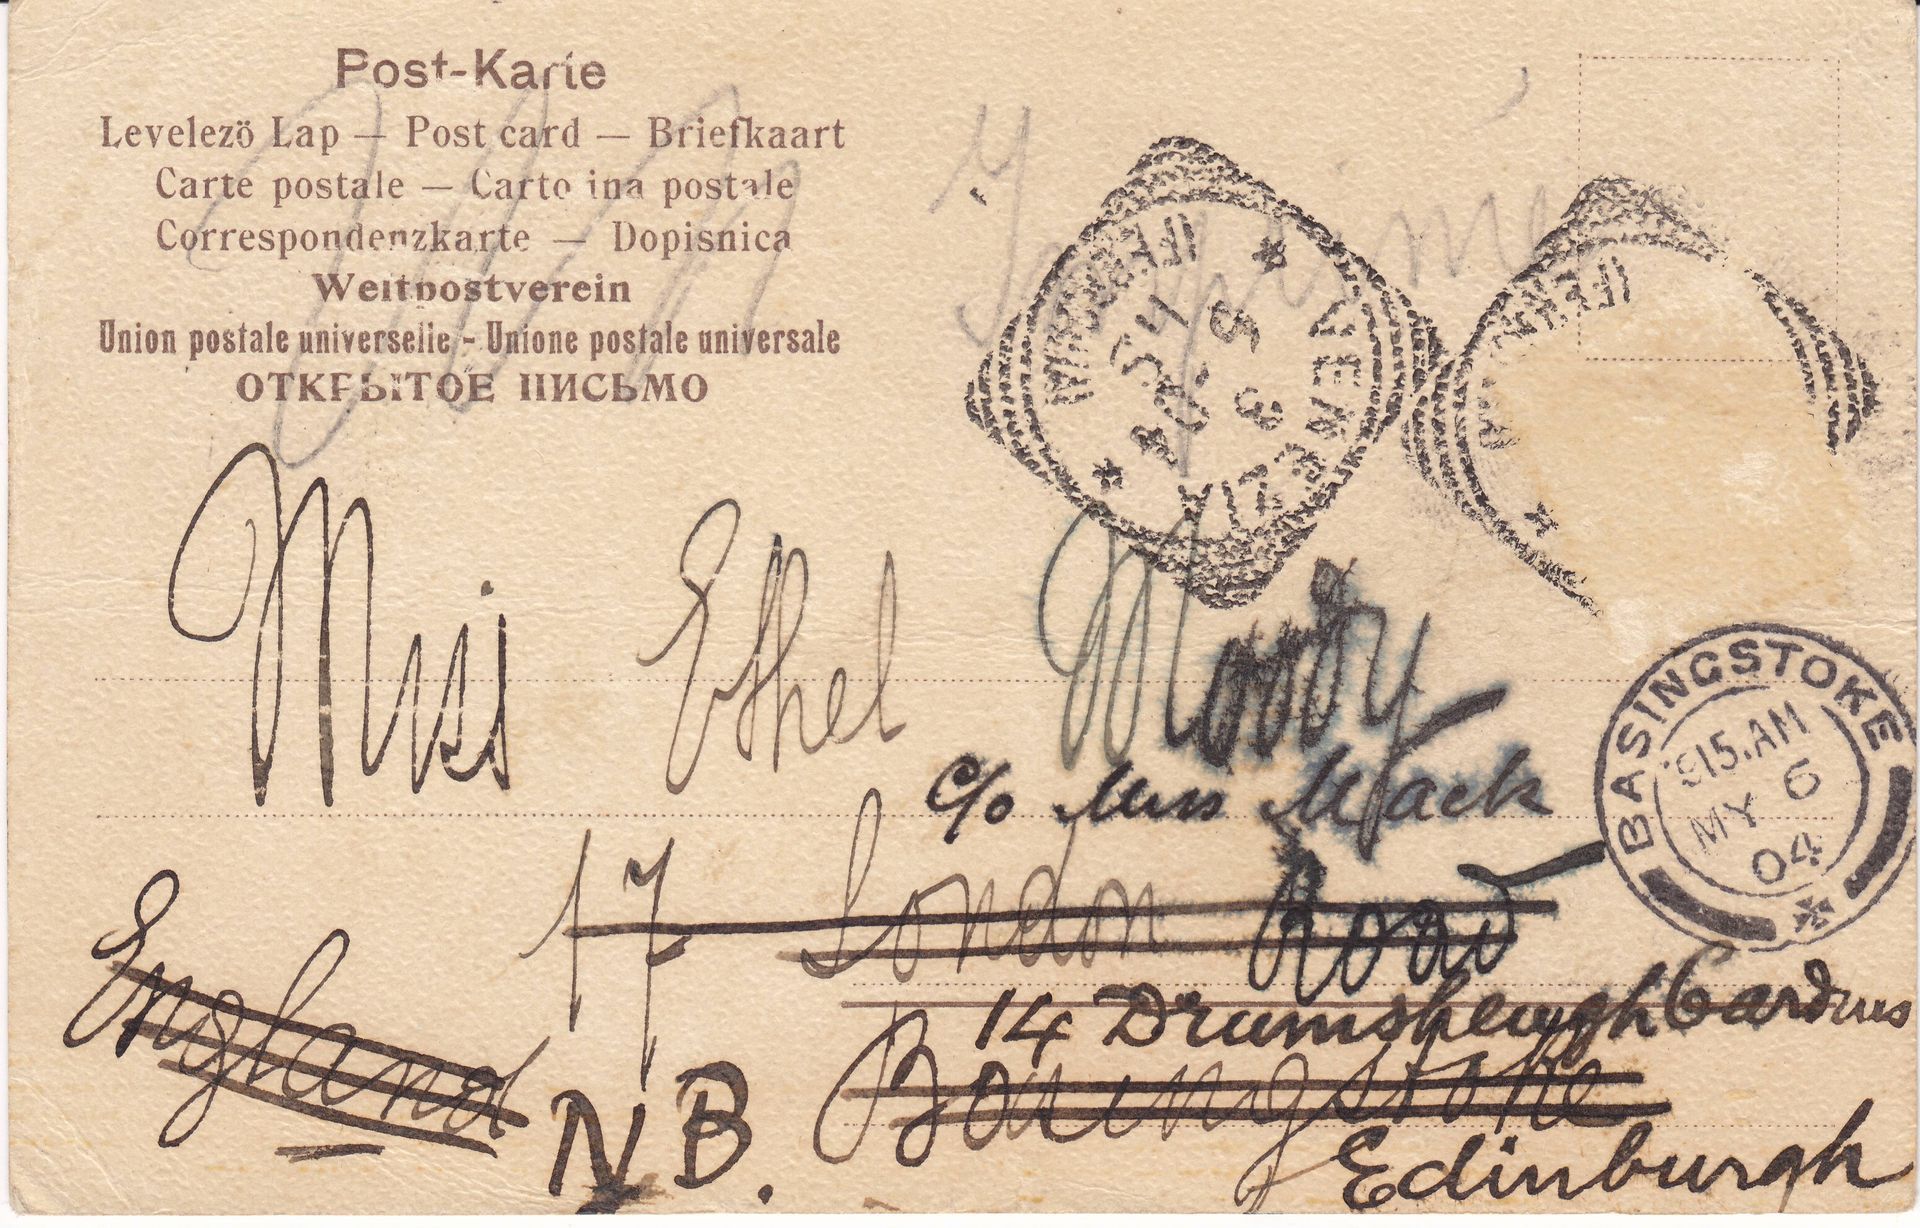 Post-Karte
Levelezö Lap — Post card — Briefkaart
Carte postale — Carto ina postale
Correspondenzkarte — Dopisnica
Weltpostverein
Union postale universelle - Unione postale universale
ОТКРЫТОЕ ПИСЬМО
Imprimé
VENEZIA
FERROVIA
3 5
04
Miss Ethel Moody
c/o Miss Mack
17 London Road
14 Drumsheugh Gardens
Basingstoke
England
N.B.
Edinburgh
BASINGSTOKE
915.AM
MY 6
04